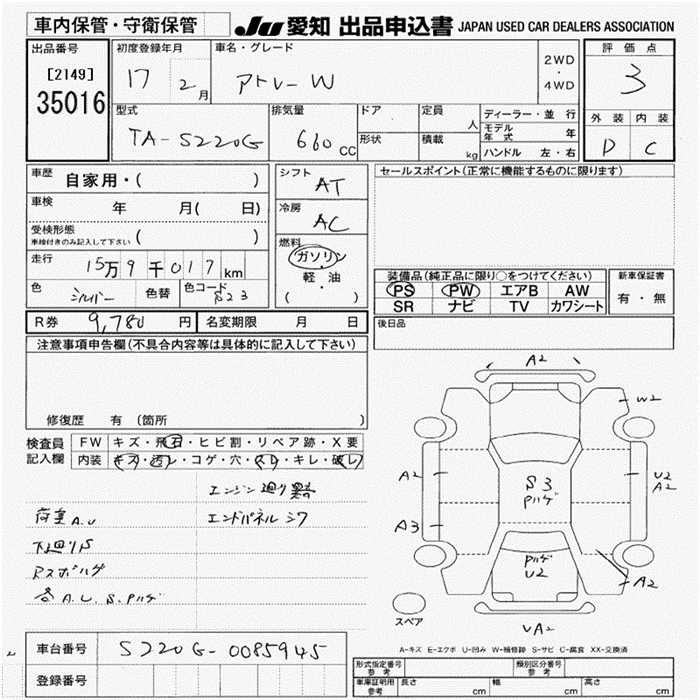 車内保管・守衛保管 JU 愛知 出品申込書 JAPAN USED CAR DEALERS ASSOCIATION
出品番号 初度登録年月 車名・グレード 評価点
[2149] 17 2月 アトレーW 2WD・4WD 3
35016
型式 排気量 ドア 定員 人 ディーラー・並行 外装 内装
TA-S220G 660CC 形状 積載 kg モデル年式 年 D C
ハンドル 左・右
車歴 自家用・( ) シフト AT セールスポイント(正常に機能するものに限ります)
車検 年 月( 日) 冷房 AC
受検形態 車検付きのみ記入して下さい ( ) 燃料 ガソリン
走行 15万9千017km 軽・油 装備品(純正品に限り○をつけてください) 新車保証書
色 シルバー 色替 色コード S23 ( ) PS PW エアB AW 有・無
SR ナビ TV カワシート
R券 9,780円 名変期限 月 日 後日品
注意事項申告欄(不具合内容等は具体的に記入して下さい)
修復歴 有 (箇所 )
検査員 FW キズ・飛石・ヒビ割・リペア跡・X要
記入欄 内装 キズ・汚レ・コゲ・穴・スレ・キレ・破レ
エンジン廻り
荷室A.U エンドパネルシワ
下廻りS
各A.U.S.Pハゲ
A2
W2
A2
S3
Pハゲ
U2
A2
A3
Pハゲ
U2
A2
スペア
UA2
A-キズ E-エクボ U-凹み W-補修跡 S-サビ C-腐食 XX-交換済
車台番号 S220G-0085945
登録番号
形式指定番号 参考 類別区分番号 参考
車庫証明用 参考 長さ cm 幅 cm 高さ cm